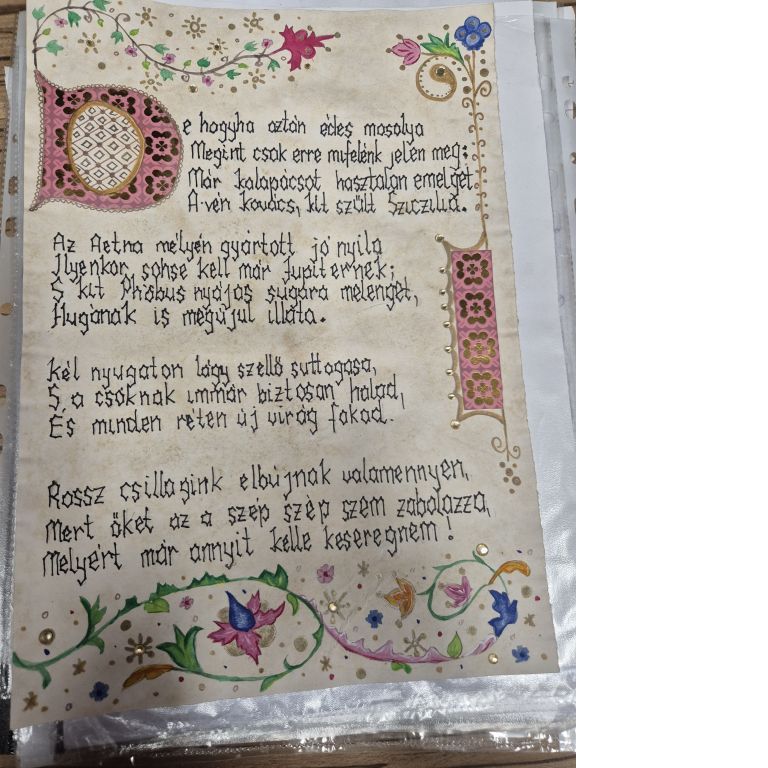 De hogyha aztán édes mosolya
Megint csak erre mifelénk jelen meg:
Már kalapácsot hasztalan emelget
A vén kovács, kit szült Sziczilia.
Az Aetna mélyén gyártott jó nyila
Ilyenkor sohse kell már Jupiternek;
S kit Phöbus nyájas sugára melenget,
Hugának is megújul illata.
kél nyugaton lágy szellő suttogasa,
S a csóknak immár biztosan halad,
És minden réten új virág fakad.
Rossz csillagink elbújnak valamennyen,
Mert őket az a szép szép szem zabolázza,
Melyért már annyit kelle keseregnem!